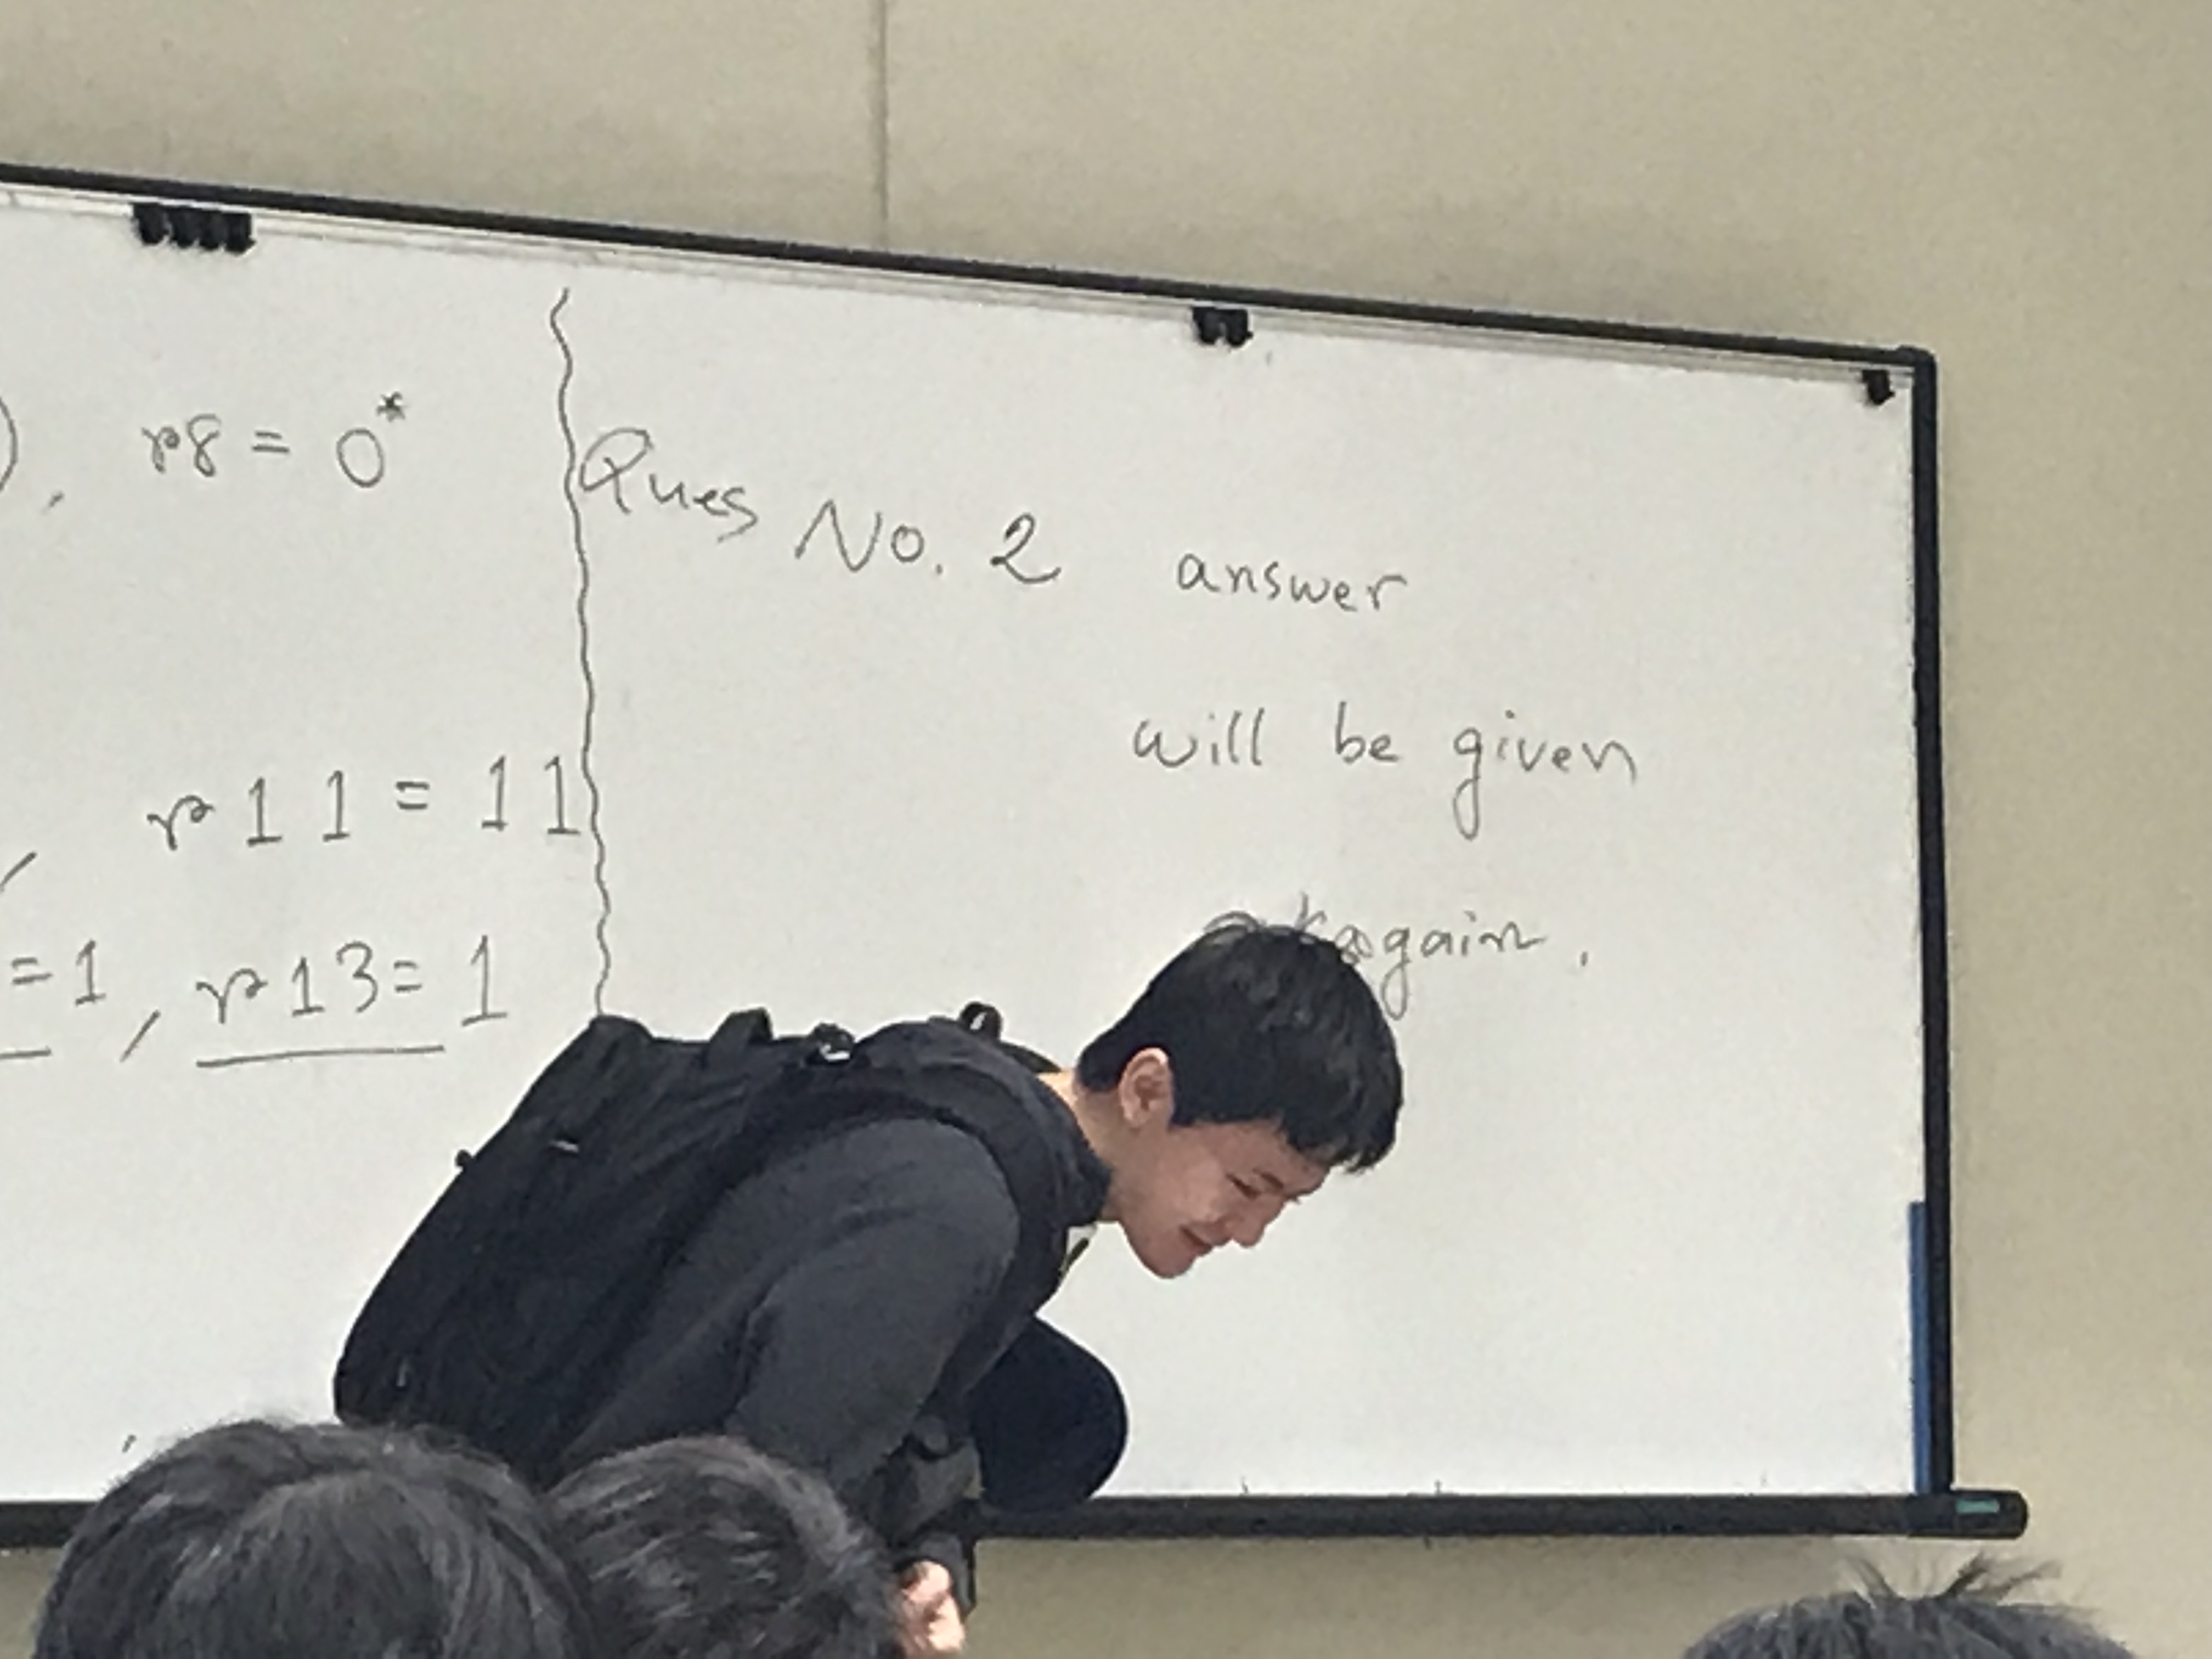 , r8 = 0*
r11 = 11
=1, r13= 1
Ques No. 2 answer
will be given
again.